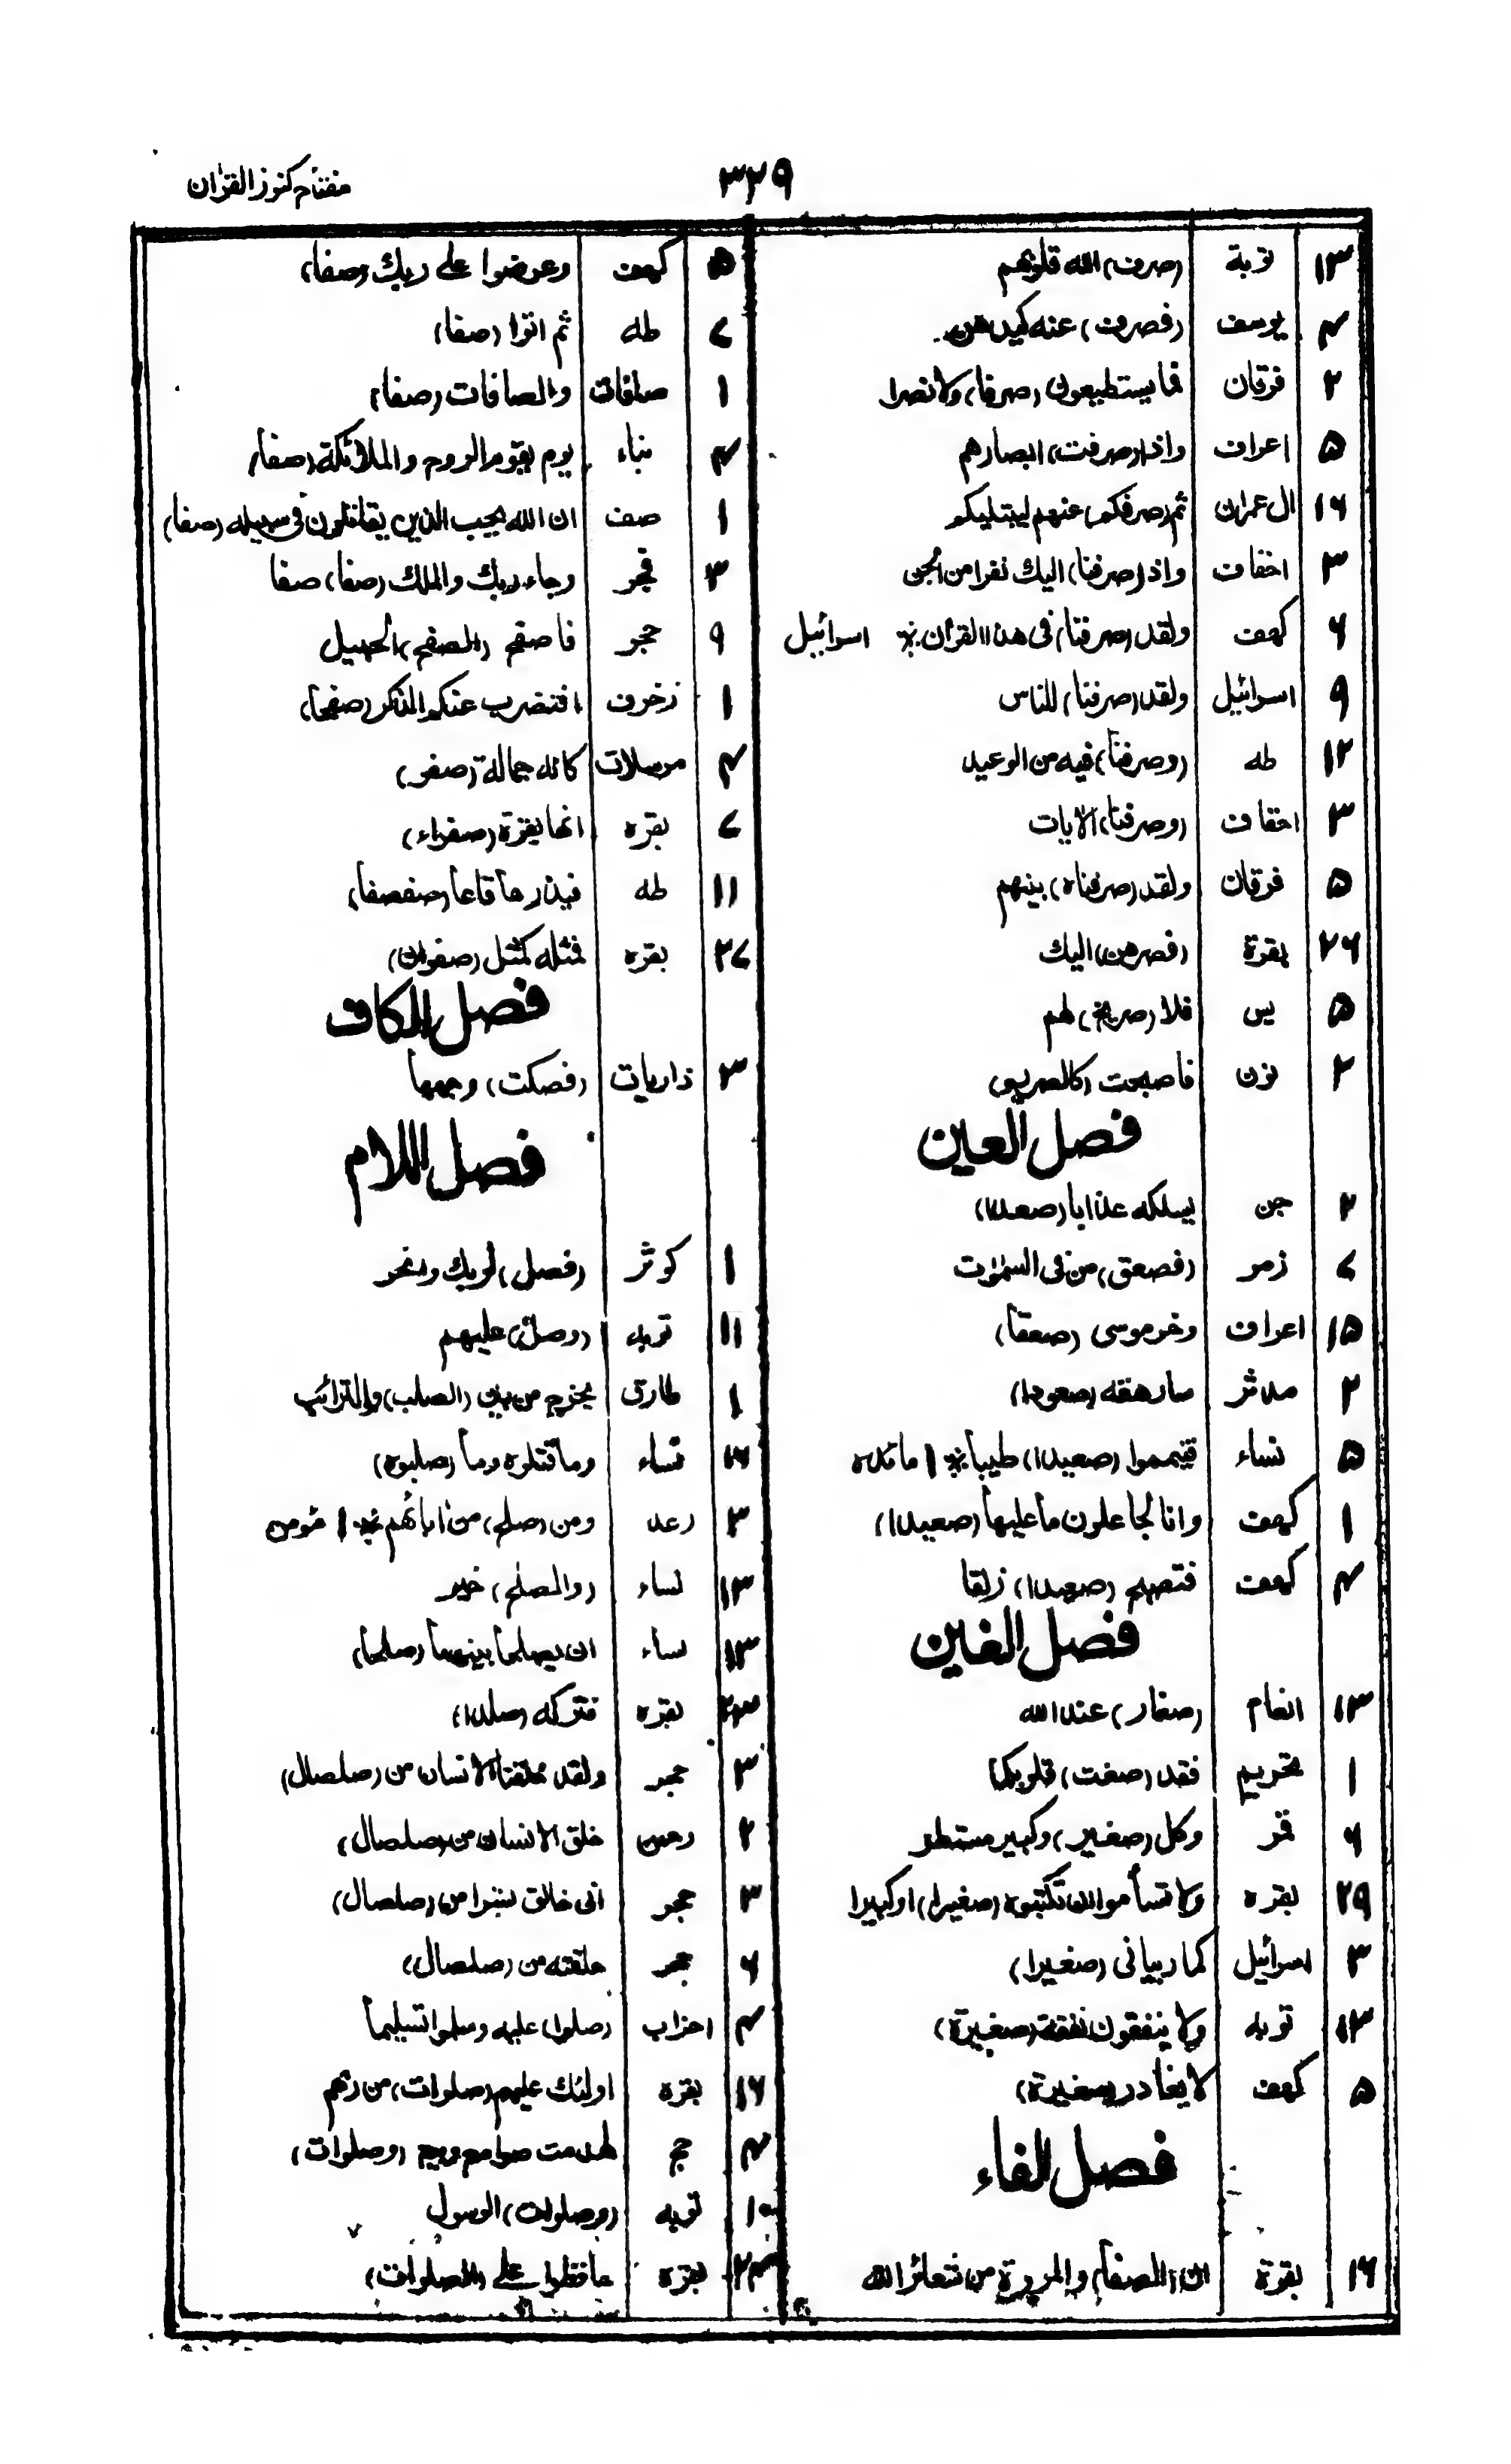 ٣٢٩
مفتاح كنوز القرآن
١٣ توبة (صرف) الله قلوبهم
٤ يوسف (فصرف) عنه كيدهن
٢ فرقان فما يستطيعون (صرفا) ولا نصرا
٥ اعراف واذا (صرفت) ابصارهم
١٦ ال عمران ثم (صرفكم) عنهم ليبتليكم
٣ احقاف واذ (صرفنا) اليك نفرا من الجن
٦ كهف ولقد (صرفنا) فى هذا القرآن اسرائيل
٩ اسرائيل ولقد (صرفنا) للناس
١٢ طه (وصرفنا) فيه من الوعيد
٣ احقاف (وصرفنا) الايات
٥ فرقان ولقد (صرفناه) بينهم
٢٦ بقرة (فصرهن) اليك
٥ يس فلا (صريخ) لهم
٢ نون فاصبحت (كالصريم)
فصل العين
٢ جن يسلكه عذابا (صعدا)
٧ زمر (فصعق) من فى السمٰوٰت
١٥ اعراف وخر موسى (صعقا)
٢ مدثر سارهقه (صعودا)
٥ نساء فتيمموا (صعيدا) طيبا مائده
١ كهف وانا لجاعلون ما عليها (صعيدا)
٤ كهف فتصبح (صعيدا) زلقا
فصل الغين
١٣ انعام (صغار) عند الله
١ تحريم فقد (صغت) قلوبكما
٦ قمر وكل (صغير) وكبير مستطر
٢٩ بقره ولا تسأموا ان تكتبوه (صغيرا) او كبيرا
٣ اسرائيل كما ربيانى (صغيرا)
١٣ توبه ولا ينفقون نفقة (صغيرة)
٥ كهف لا يغادر (صغيرة)
فصل الفاء
١٦ بقرة ان (الصفا) والمروة من شعائر الله
٥ كهف وعرضوا على ربك (صفا)
٧ طه ثم اتوا (صفا)
١ صافات والصافات (صفا)
٤ نباء يوم يقوم الروح والملائكة (صفا)
١ صف ان الله يحب الذين يقاتلون فى سبيله (صفا)
٣ فجر وجاء ربك والملك (صفا) صفا
٩ حجر فاصفح (الصفح) الجميل
١ زخرف افنضرب عنكم الذكر (صفحا)
٤ مرسلات كانه جمالة (صفر)
٧ بقره انها بقرة (صفراء)
١١ طه فيذرها قاعا (صفصفا)
٣٧ بقره فمثله كمثل (صفوان)
فصل الكاف
٣ ذاريات (فصكت) وجهها
فصل اللام
١ كوثر (فصل) لربك وانحر
١١ توبه (وصل) عليهم
١ طارق يخرج من بين (الصلب) والترائب
١٦ نساء وما قتلوه وما (صلبوه)
٣ رعد ومن (صلح) من اٰبائهم مومن
١٣ نساء (والصلح) خير
١٣ نساء ان يصلحا بينهما (صلحا)
بقره فتركه (صلدا)
٣ حجر ولقد خلقنا الانسان من (صلصال)
٢ رحمن خلق الانسان من (صلصال)
٣ حجر انى خالق بشرا من (صلصال)
٦ حجر خلقته من (صلصال)
٤ احزاب (صلوا) عليه وسلموا تسليما
١٦ بقره اولئك عليهم (صلوات) من ربهم
٤ حج لهدمت صوامع وبيع (وصلوات)
توبه (وصلوات) الرسول
بقره حافظوا على (الصلوات)